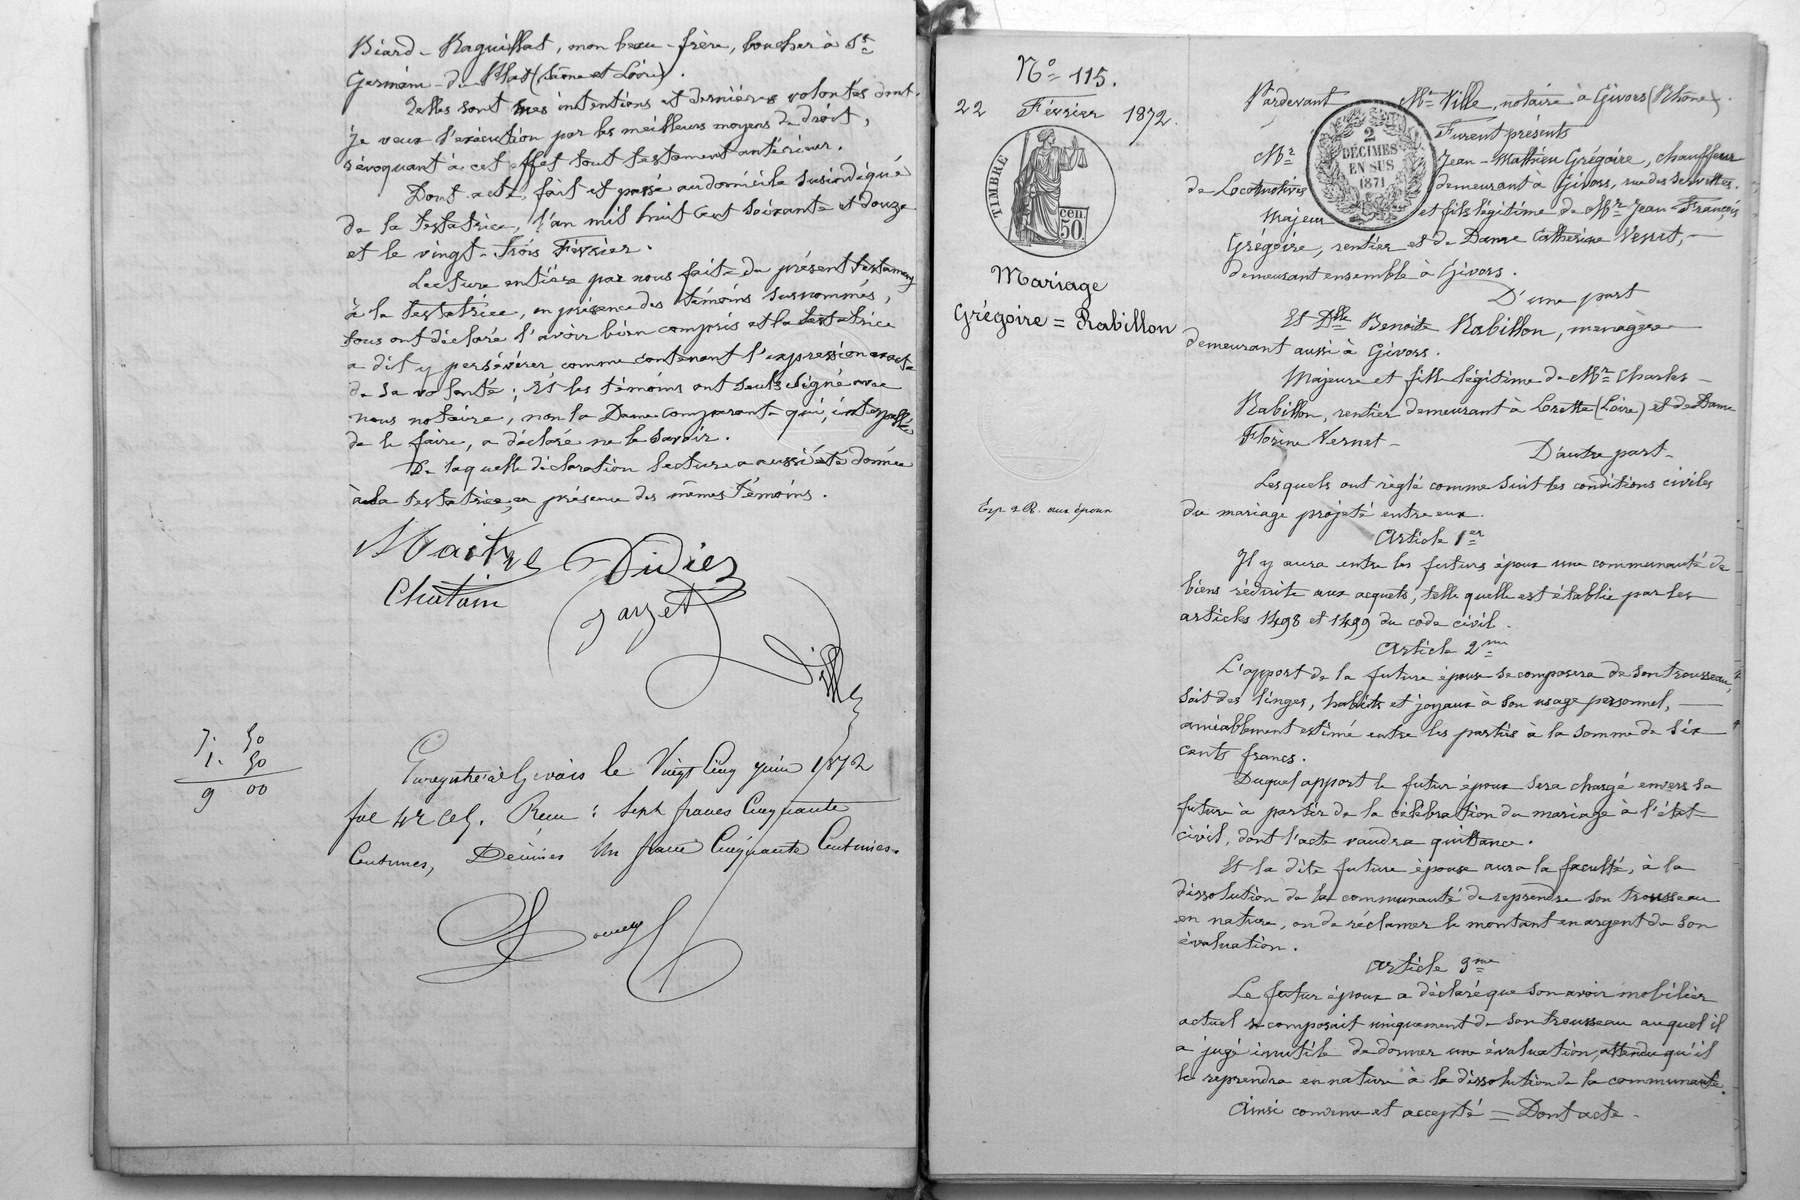 Biard-Raquillat, mon beau-frère, boucher à St
Germain-du-Plat (Saône et Loire).
Telles sont mes intentions et dernières volontés dont
je veux l'exécution par les meilleurs moyens de droit,
révoquant à cet effet tout testament antérieur.
Dont acte, fait et passé au domicile susindiqué
de la testatrice, l'an mil huit cent soixante et douze
et le vingt-trois Février.
Lecture entière par nous faite du présent testament
à la testatrice, en présence des témoins susnommés,
tous ont déclaré l'avoir bien compris et la testatrice
a dit y persévérer comme contenant l'expression exacte
de sa volonté; Et les témoins ont seuls signé avec
nous notaire, non la Dame comparante qui, interpellée
de le faire, a déclaré ne le savoir.
De laquelle déclaration lecture a aussi été donnée
à la testatrice, en présence des mêmes témoins.
Maitre Didier
Chatain
Jarzet
Ville
7. 50
1. 50
9 00
Enregistré à Givors le Vingt Cinq juin 1872
fol 42 C 5. Reçu : Sept francs Cinquante
Centimes, Décimes Un franc Cinquante Centimes.
No 115.
22 Février 1872.
TIMBRE
50 cen.
Mariage
Grégoire = Rabillon
Exp & R. aux époux
2
DÉCIMES
EN SUS
1871
Pardevant Me Ville, notaire à Givors (Rhône).
Furent présents
Mr Jean-Mathieu Grégoire, chauffeur
de Locomotives demeurant à Givors, rue des
Majeur et fils légitime de Mr Jean-François
Grégoire, rentier et de Dame Catherine Venet,
demeurant ensemble à Givors.
D'une part
Et Dlle Benoite Rabillon, menagère
demeurant aussi à Givors.
Majeure et fille légitime de Mr Charles
Rabillon, rentier demeurant à Lorette (Loire) et de Dame
Florine Vernet -
D'autre part -
Lesquels ont réglé comme suit les conditions civiles
du mariage projeté entre eux.
Article 1er
Il y aura entre les futurs époux une communauté de
biens réduite aux acquets, telle quelle est établie par les
articles 1498 et 1499 du code civil.
Article 2me
L'apport de la future épouse se composera de son trousseau,
soit des linges, habits et joyaux à son usage personnel,
amiablement estimé entre les parties à la somme de six
cents francs.
Duquel apport le futur époux sera chargé envers sa
future à partir de la célébration du mariage à l'état
civil, dont l'acte vaudra quittance.
Et la dite future épouse aura la faculté, à la
dissolution de la communauté de reprendre son trousseau
en nature, ou de réclamer le montant en argent de son
évaluation.
Article 3me
Le futur époux a déclaré que son avoir mobilier
actuel se composait uniquement de son trousseau auquel il
a jugé inutile de donner une évaluation, attendu qu'il
le reprendra en nature à la dissolution de la communauté.
Ainsi convenu et accepté = Dont acte -